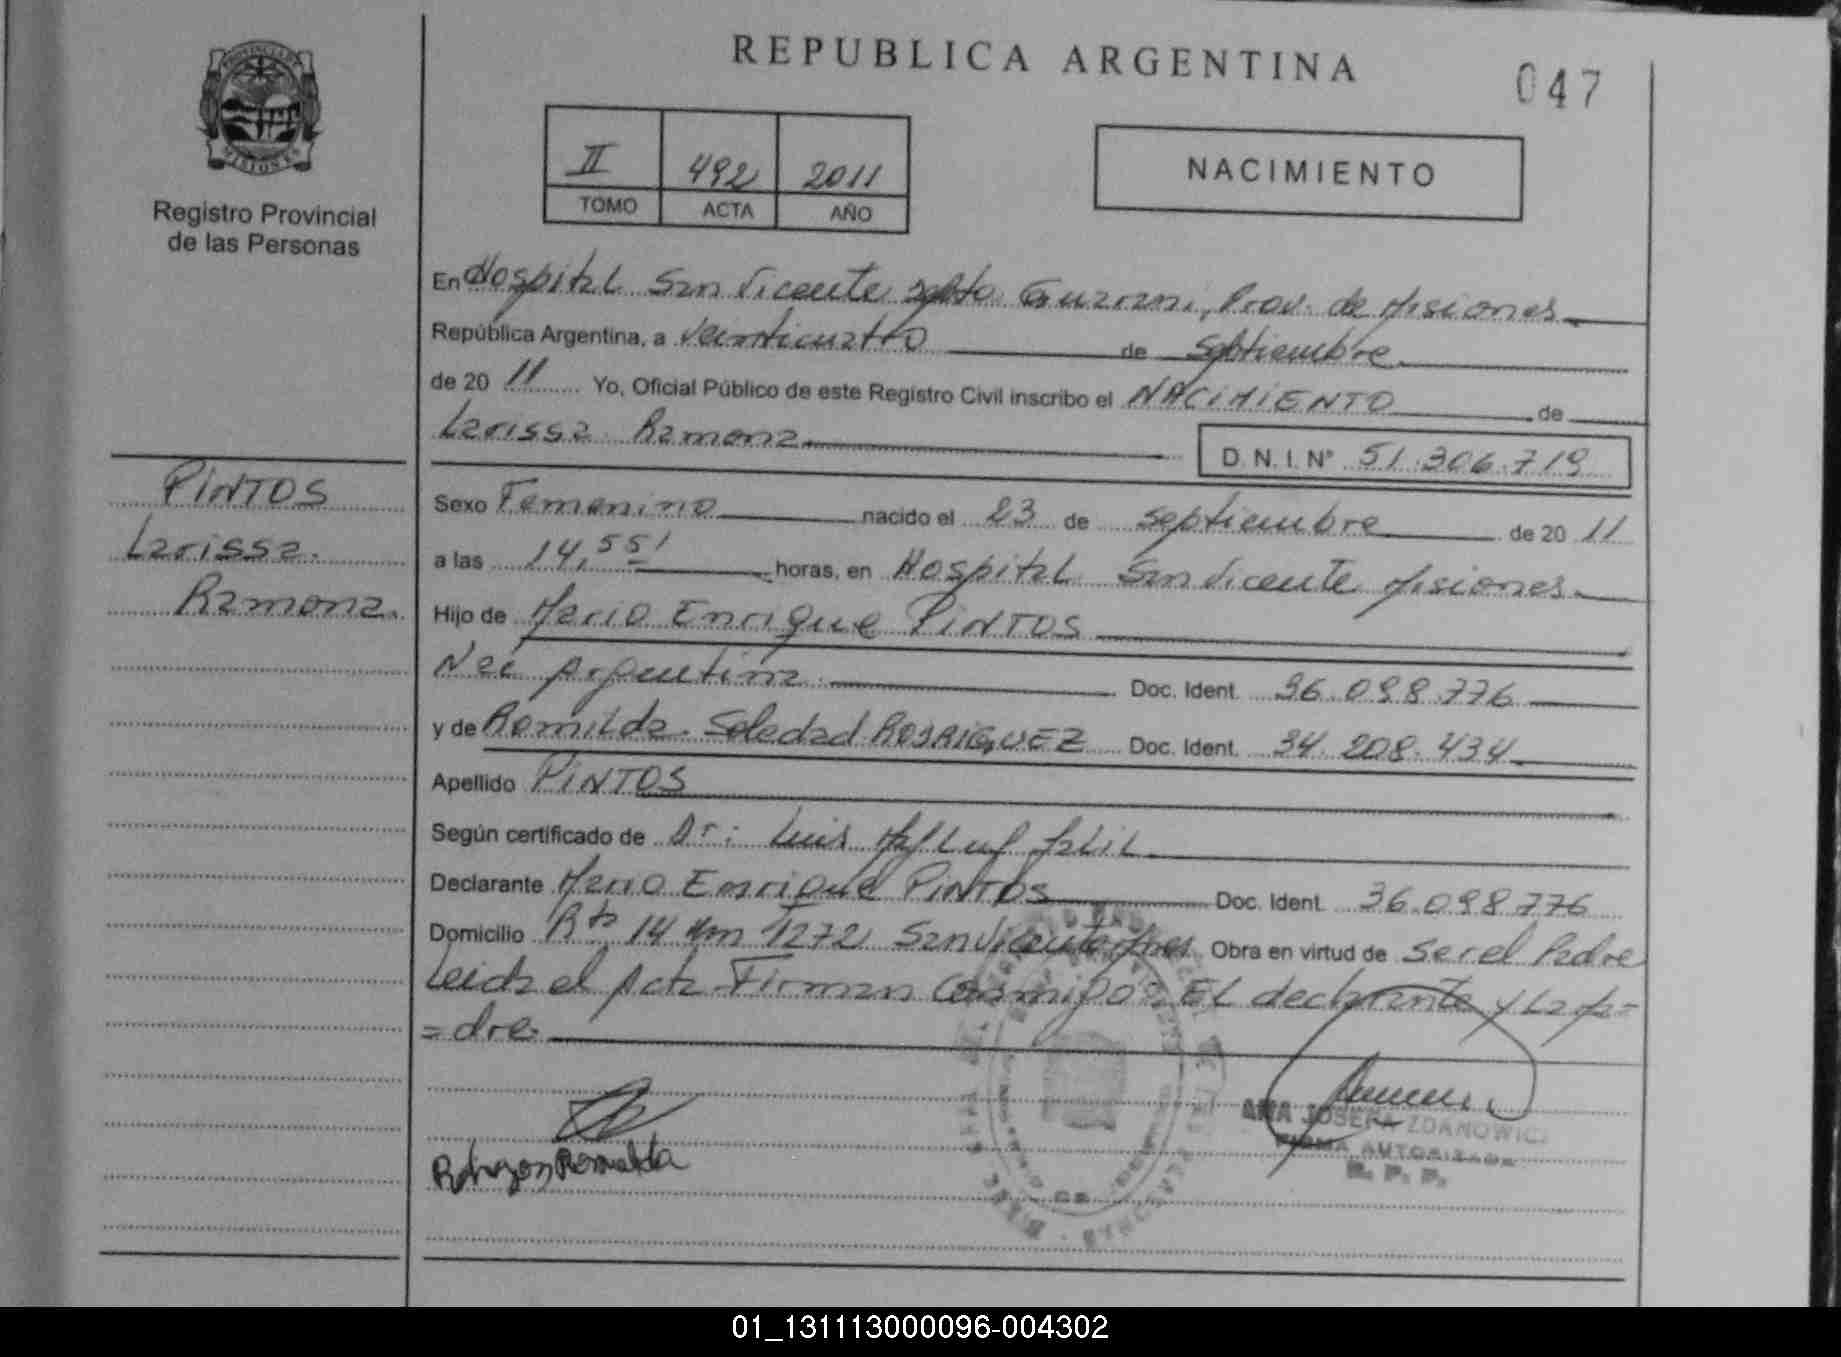 REPUBLICA ARGENTINA
047
PROVINCIA DE
MISIONES
Registro Provincial
de las Personas
II 492 2011
TOMO ACTA AÑO
NACIMIENTO
En Hospital San Vicente Dpto Guarani, Prov. de Misiones
República Argentina, a Veinticuatro de Septiembre
de 2011 Yo, Oficial Público de este Registro Civil inscribo el NACIMIENTO de
Larissa Ramona
D.N.I.Nº 51.306.719
PINTOS
Larissa
Ramona.
Sexo Femenino nacido el 23 de septiembre de 2011
a las 14,55' horas, en Hospital San Vicente Misiones
Hijo de Mario Enrique PINTOS
Nac Argentina Doc. Ident. 36.098.776
y de Romilda Soledad RODRIGUEZ Doc. Ident. 34.208.434
Apellido PINTOS
Según certificado de Dr: Luis Jalil
Declarante Mario Enrique PINTOS Doc. Ident. 36.098.776
Domicilio Rta 14 Km 1272 San Vicente Mnes Obra en virtud de Ser el Padre
Leida el Acta Firman Conmigo EL declarante y La Ma=
=dre
ANA JOSEFA ZDANOWICZ
FIRMA AUTORIZADA
R. P. P.
01_131113000096-004302